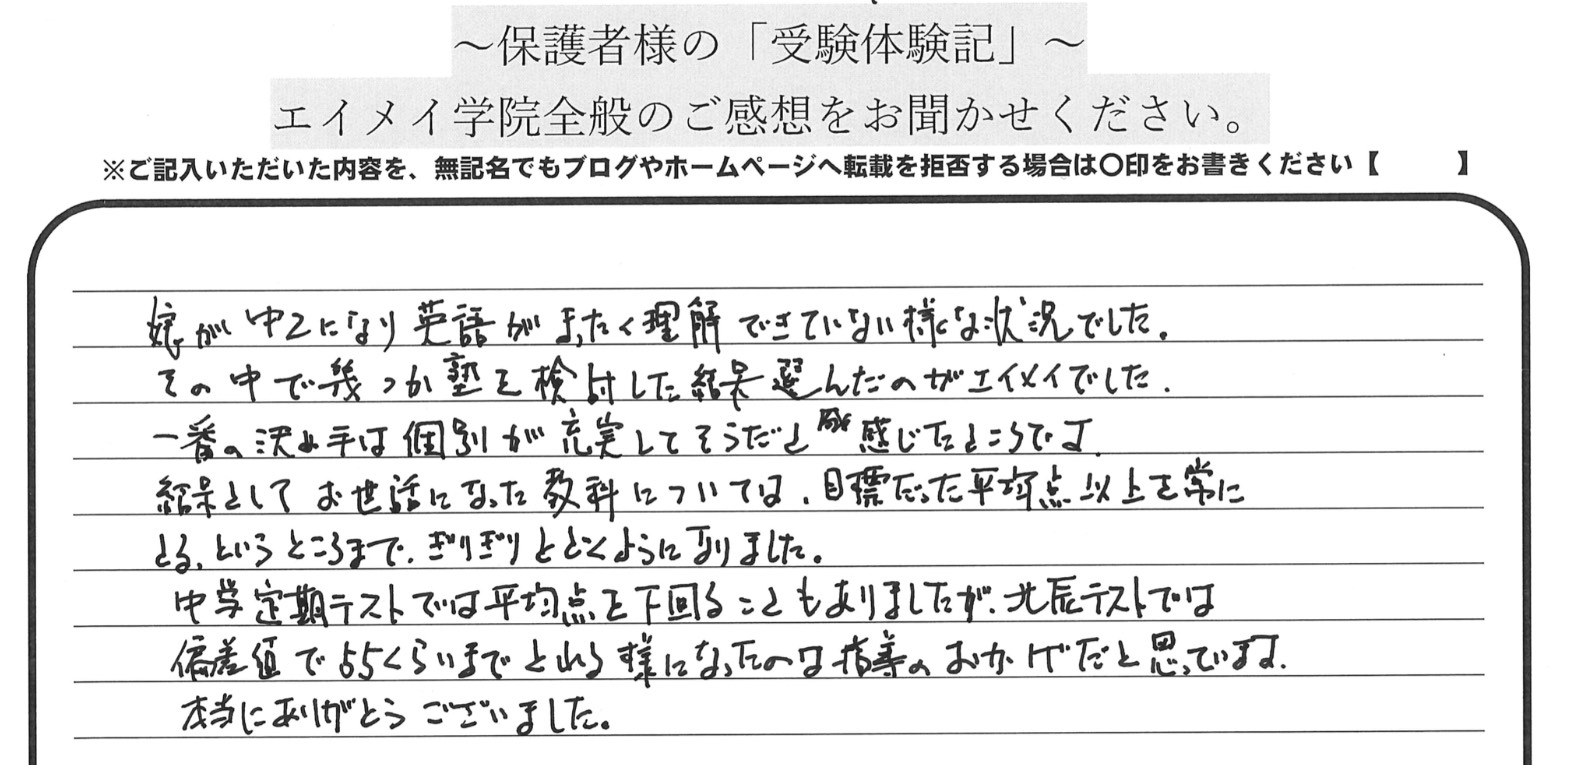 ～保護者様の「受験体験記」～
エイメイ学院全般のご感想をお聞かせください。
※ご記入いただいた内容を、無記名でもブログやホームページへ転載を拒否する場合は〇印をお書きください【　　　】
娘が中2になり英語がまったく理解できていない様な状況でした。
その中で幾つか塾を検討した結果選んだのがエイメイでした。
一番の決め手は個別が充実してそうだと感じたところです。
結果としてお世話になった教科については、目標だった平均点以上を常に
とる、というところまで、ぎりぎりととどくようになりました。
中学定期テストでは平均点を下回ることもありましたが、北辰テストでは
偏差値で55くらいまでとれる様になったのは指導のおかげだと思っています。
本当にありがとうございました。